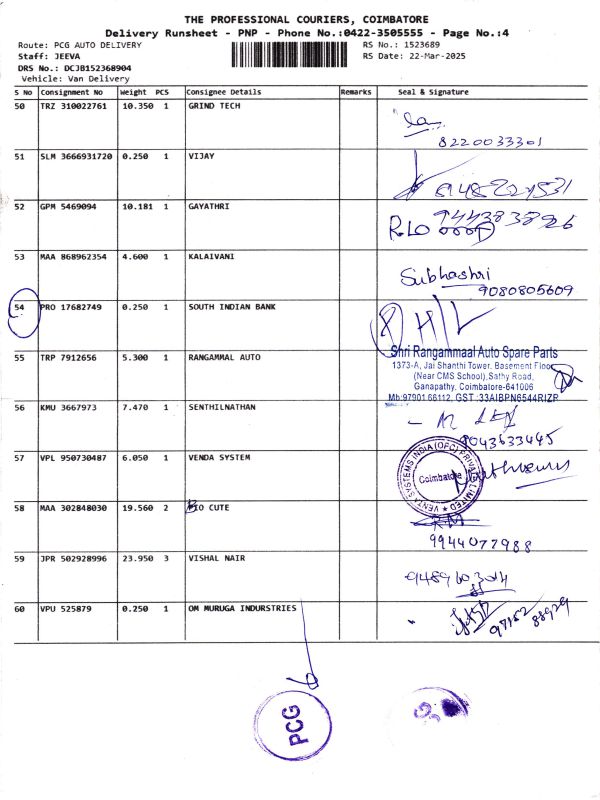 THE PROFESSIONAL COURIERS, COIMBATORE
Delivery Runsheet - PNP - Phone No.:0422-3505555 - Page No.:4
Route: PCG AUTO DELIVERY
RS No.: 1523689
Staff: JEEVA
RS Date: 22-Mar-2025
DRS No.: DCJB152368904
Vehicle: Van Delivery
S No Consignment No Weight PCS Consignee Details Remarks Seal & Signature
50 TRZ 310022761 10.350 1 GRIND TECH
8220033301
51 SLM 3666931720 0.250 1 VIJAY
52 GPM 5469094 10.181 1 GAYATHRI
53 MAA 868962354 4.600 1 KALAIVANI
Subhashri
9080805609
54 PRO 17682749 0.250 1 SOUTH INDIAN BANK
H/L
55 TRP 7912656 5.300 1 RANGAMMAL AUTO
Shri Rangammaal Auto Spare Parts
1373-A, Jai Shanthi Tower, Basement Floor
(Near CMS School),Sathy Road,
Ganapathy, Coimbatore-641006
Mb:97901 66112, GST :33AIBPN6544R1ZR
56 KMU 3667973 7.470 1 SENTHILNATHAN
9043633445
57 VPL 950730487 6.050 1 VENDA SYSTEM
VENTA SYSTEMS INDIA (OPC) PRIVATE LIMITED
Coimbatore
58 MAA 302848030 19.560 2 BIO CUTE
RM
9944077988
59 JPR 502928996 23.950 3 VISHAL NAIR
60 VPU 525879 0.250 1 OM MURUGA INDURSTRIES
97152
88929
PCG